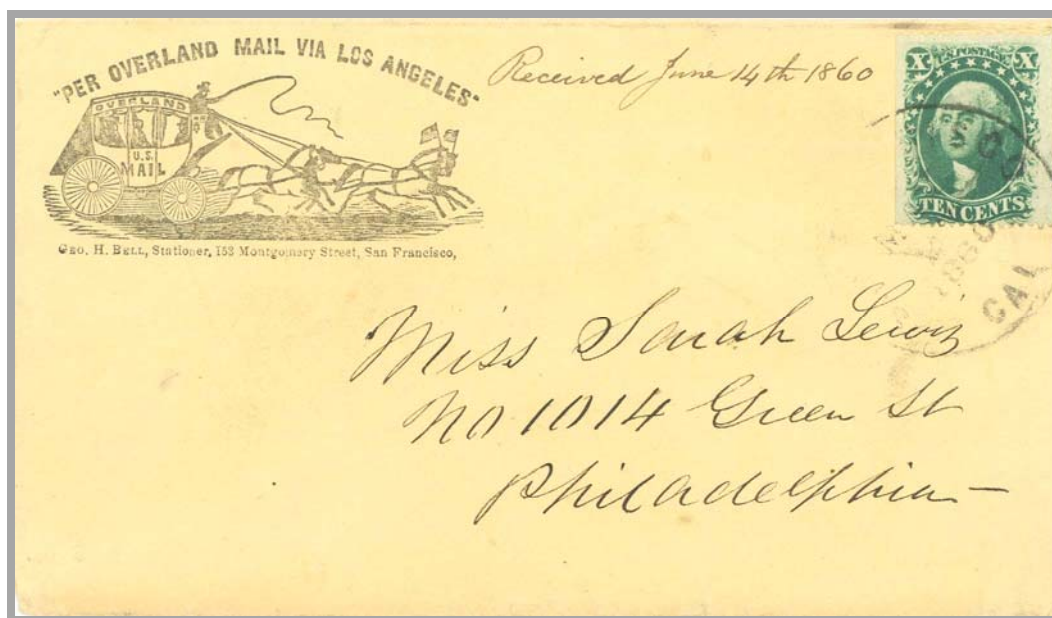 "PER OVERLAND MAIL VIA LOS ANGELES"
OVERLAND
U.S.
MAIL
Geo. H. Bell, Stationer, 153 Montgomery Street, San Francisco,
Received June 14th 1860
U.S. POSTAGE
X X
TEN CENTS
CO
1860
CAL
Miss Sarah Lewis
No 1014 Green St
Philadelphia —